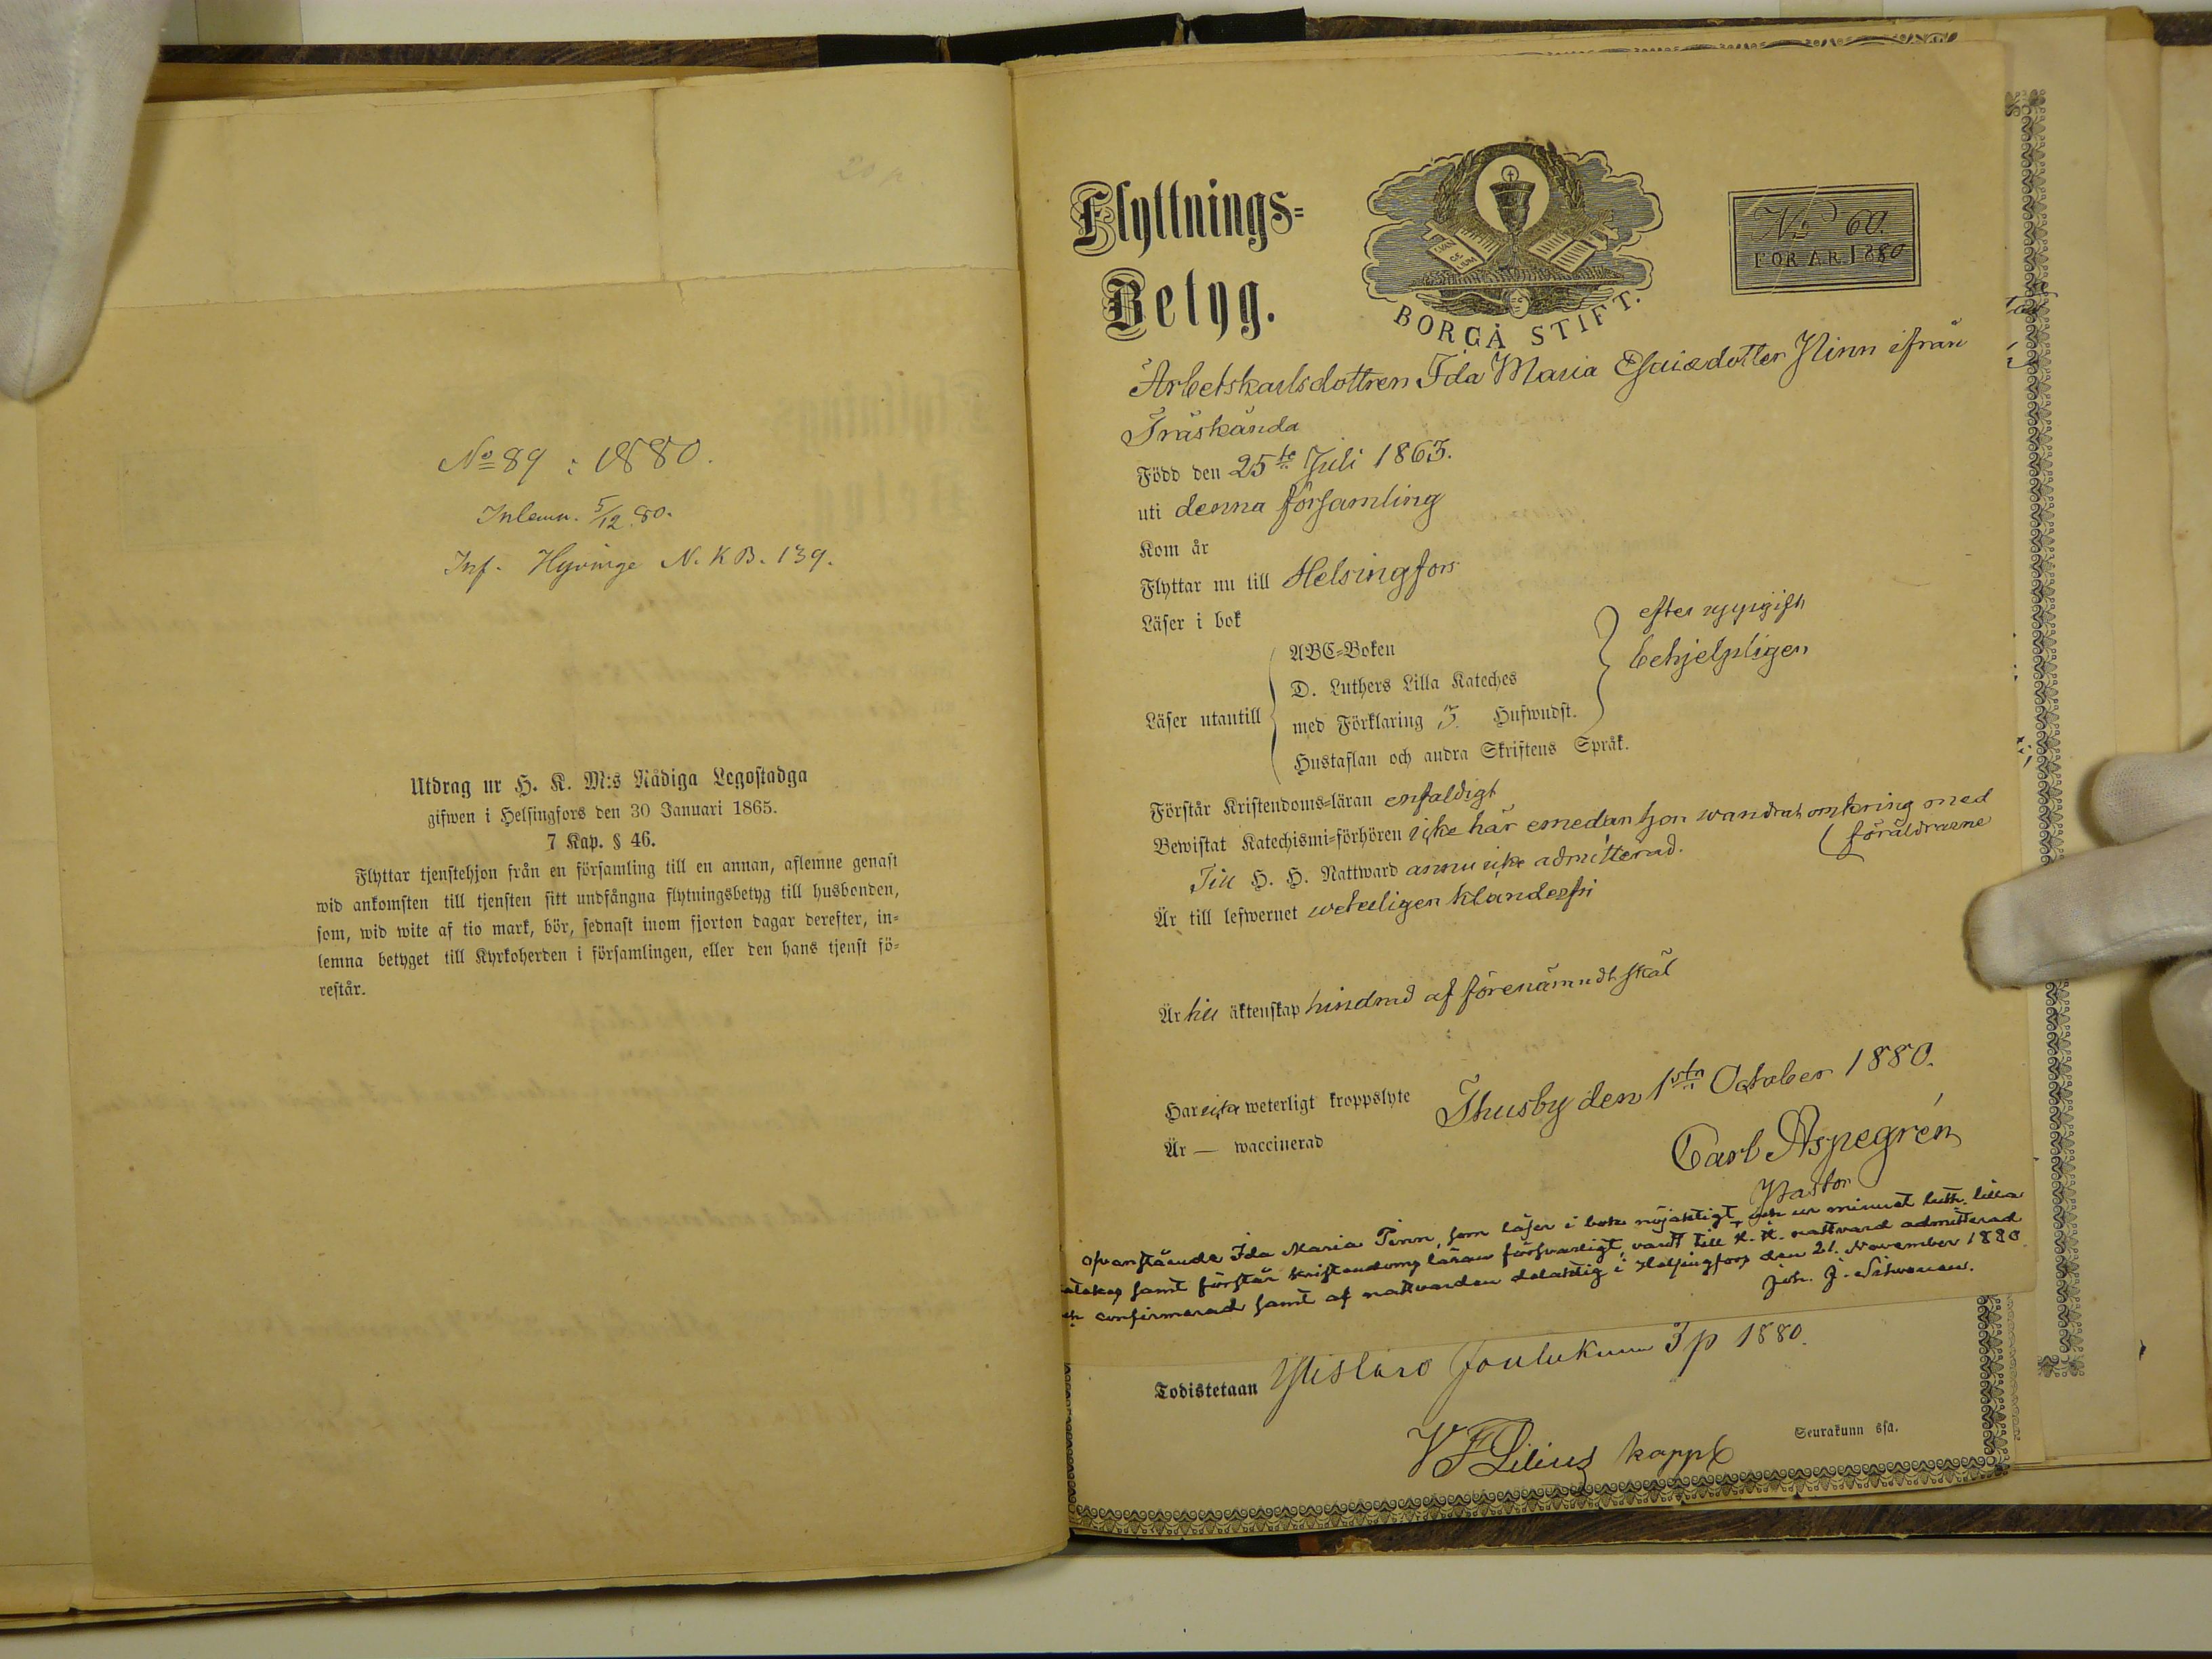 No 89 : 1880.
Inlemn. 5/12 80.
Inf. Hyvinge N. K B. 139.
Utdrag ur H. K. M:s Nådiga Legostadga
gifwen i Helsingfors den 30 Januari 1865.
7 Kap. § 46.
Flyttar tjenstehjon från en församling till en annan, aflemne genast
wid ankomsten till tjensten sitt undfångna flytningsbetyg till husbonden,
som, wid wite af tio mark, bör, sednast inom fjorton dagar derefter, in=
lemna betyget till Kyrkoherden i församlingen, eller den hans tjenst fö=
restår.
Flyttnings=
Betyg.
BORGÅ STIFT.
No 60.
FÖR ÅR 1880
Arbetskarlsdottren Ida Maria Esaiædotter Pinn ifrån
Träskända
Född den 25te Juli 1863.
uti denna församling
Kom år
Flyttar nu till Helsingfors
Läser i bok
efter uppgift
behjelpligen
Läser utantill
ABC=Boken
D. Luthers Lilla Kateches
med Förklaring 3. Hufwudst.
Hustaflan och andra Skriftens Språk.
Förstår Kristendoms=läran enfaldigt
Bewistat Katechismi=förhören icke här emedan hon wandrat omkring med
föräldrarne
Till H. H. Nattward ännu icke admitterad.
Är till lefwernet weterligen klanderfri
Är till äktenskap hindrad af förenämndt skäl
Har icke weterligt kroppslyte
Är — waccinerad
Thusby den 1sta October 1880.
Carl Aspegrén
Pastor
Ofvanstående Ida Maria Pinn, som läser i bok nöjaktigt och ur minnet luth. lilla
katekes samt förstår kristendomsläran försvarligt, vardt till H. H. nattvard admitterad
och confirmerad samt af nattvarden delaktig i Helsingfors den 21. November 1880.
Joh. G.
Todistetaan Ylistaro Joulukuun 3 p 1880.
V F Lilius kappl
Seurakunn ssa.